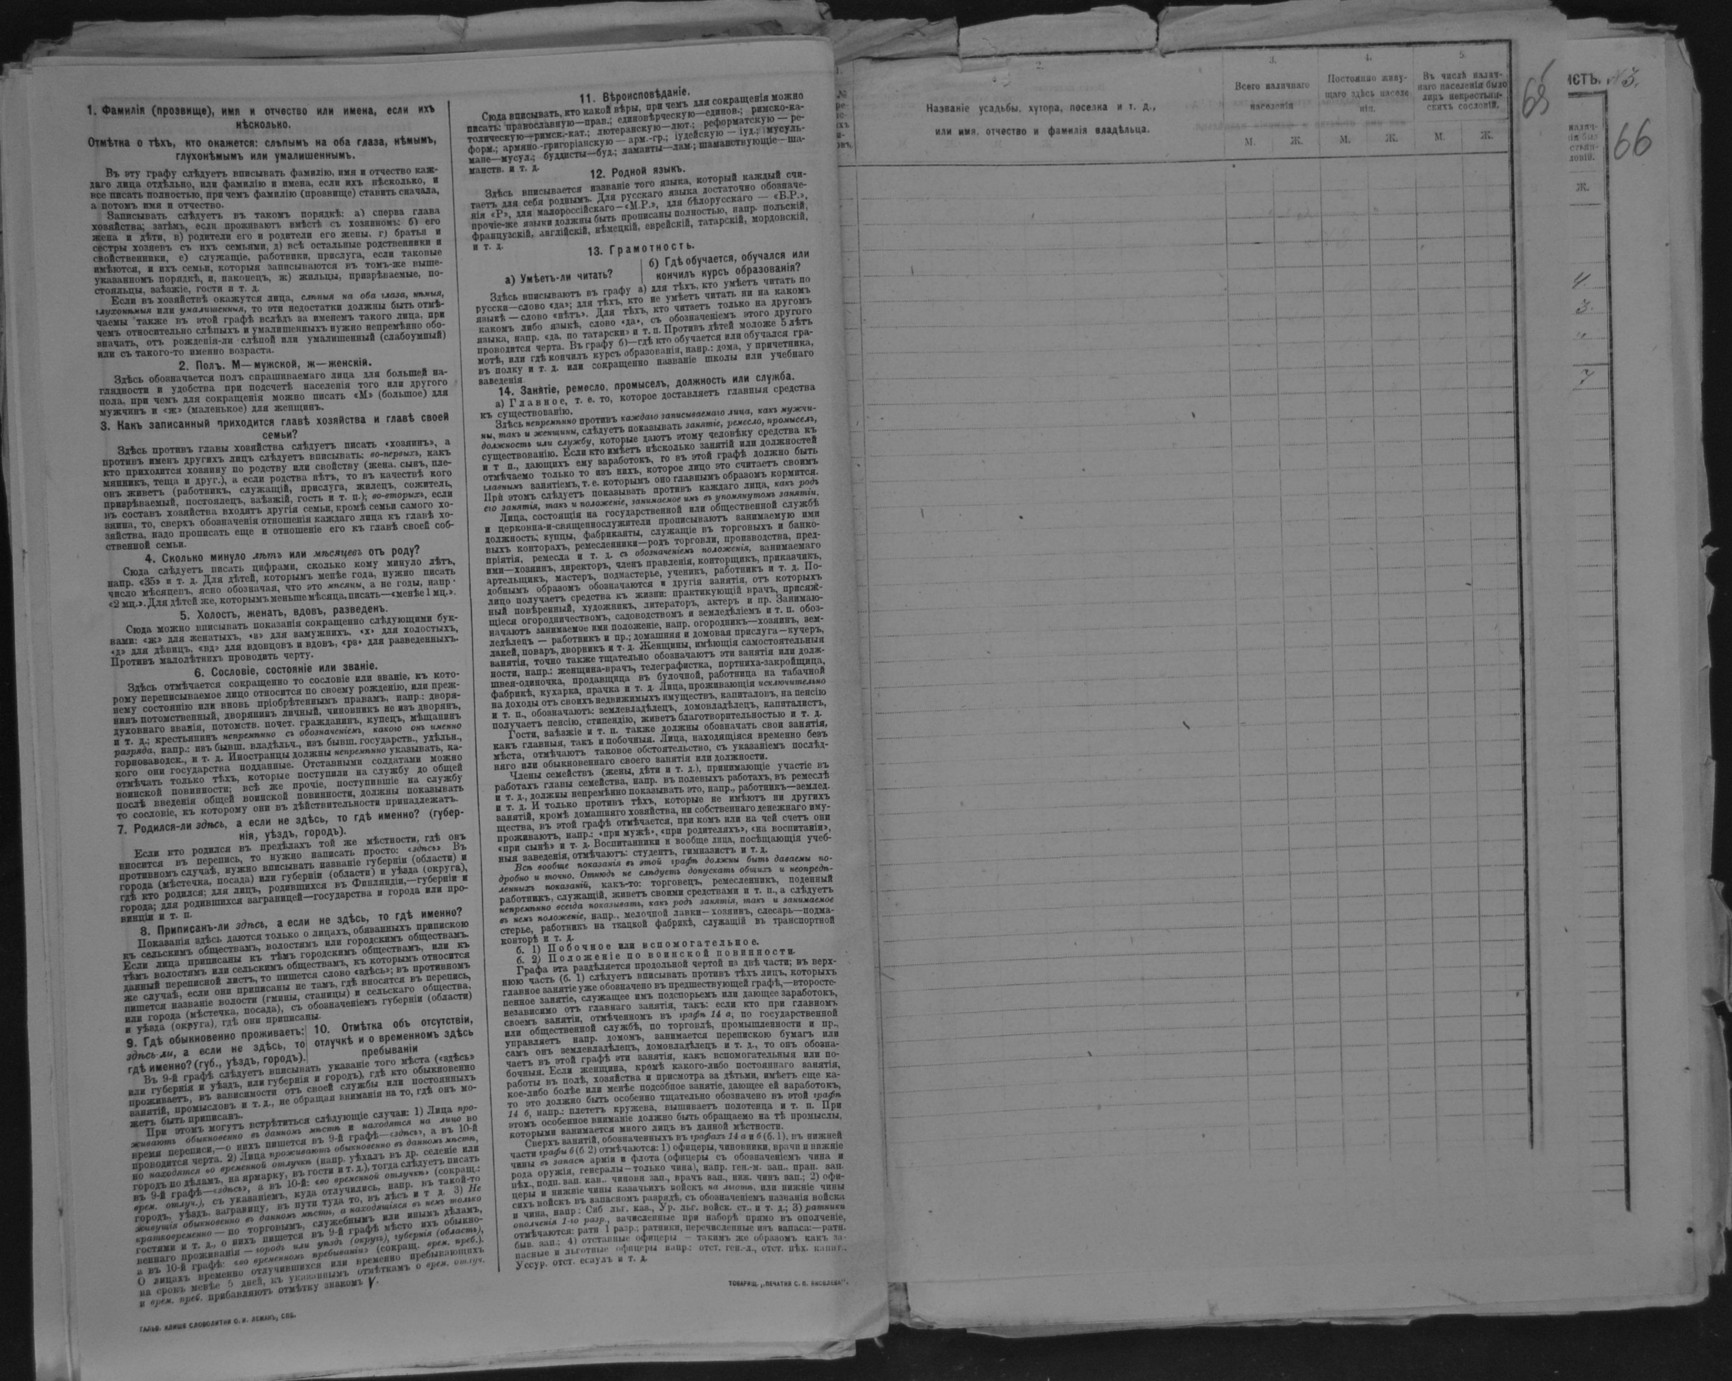 1. Фамилія (прозвище), имя и отчество или имена, если ихъ
нѣсколько.
Отмѣтка о тѣхъ, кто окажется: слѣпымъ на оба глаза, нѣмымъ,
глухонѣмымъ или умалишеннымъ.
Въ эту графу слѣдуетъ вписывать фамилію, имя и отчество каж-
даго лица отдѣльно, или фамилію и имена, если ихъ нѣсколько, и
все писать полностью, при чемъ фамилію (прозвище) ставить сначала,
а потомъ имя и отчество.
Записывать слѣдуетъ въ такомъ порядкѣ: а) сперва глава
хозяйства; затѣмъ, если проживаютъ вмѣстѣ съ хозяиномъ: б) его
жена и дѣти, в) родители его и родители его жены, г) братья и
сестры хозяевъ съ ихъ семьями, д) всѣ остальные родственники и
свойственники, е) служащіе, работники, прислуга, если таковые
имѣются, и ихъ семьи, которыя записываются въ томъ-же выше-
указанномъ порядкѣ, и, наконецъ, ж) жильцы, призрѣваемые, по-
стояльцы, заѣзжіе, гости и т. д.
Если въ хозяйствѣ окажутся лица, слѣпыя на оба глаза, нѣмыя,
глухонѣмыя или умалишенныя, то эти недостатки должны быть отмѣ-
чаемы также въ этой графѣ вслѣдъ за именемъ такого лица, при
чемъ относительно слѣпыхъ и умалишенныхъ нужно непремѣнно обо-
значать, отъ рожденія-ли слѣпой или умалишенный (слабоумный)
или съ такого-то именно возраста.
2. Полъ. М—мужской, ж—женскій.
Здѣсь обозначается полъ спрашиваемаго лица для большей на-
глядности и удобства при подсчетѣ населенія того или другого
пола, при чемъ для сокращенія можно писать «М» (большое) для
мужчинъ и «ж» (маленькое) для женщинъ.
3. Какъ записанный приходится главѣ хозяйства и главѣ своей
семьи?
Здѣсь противъ главы хозяйства слѣдуетъ писать «хозяинъ», а
противъ именъ другихъ лицъ слѣдуетъ вписывать: во-первыхъ, какъ
кто приходится хозяину по родству или свойству (жена, сынъ, пле-
мянникъ, теща и друг.), а если родства нѣтъ, то въ качествѣ кого
онъ живетъ (работникъ, служащій, прислуга, жилецъ, сожитель,
призрѣваемый, постоялецъ, заѣзжій, гость и т. п.); во-вторыхъ, если
въ составъ хозяйства входятъ другія семьи, кромѣ семьи самого хо-
зяина, то, сверхъ обозначенія отношенія каждаго лица къ главѣ хо-
зяйства, надо прописать еще и отношеніе его къ главѣ своей соб-
ственной семьи.
4. Сколько минуло лѣтъ или мѣсяцевъ отъ роду?
Сюда слѣдуетъ писать цифрами, сколько кому минуло лѣтъ,
напр. «35» и т. д. Для дѣтей, которымъ менѣе года, нужно писать
число мѣсяцевъ, ясно обозначая, что это мѣсяцы, а не годы, напр.
«2 мц.». Для дѣтей же, которымъ меньше мѣсяца, писать—«менѣе 1 мц.».
5. Холостъ, женатъ, вдовъ, разведенъ.
Сюда можно вписывать показанія сокращенно слѣдующими бук-
вами: «ж» для женатыхъ, «з» для замужнихъ, «х» для холостыхъ,
«д» для дѣвицъ, «вд» для вдовцовъ и вдовъ, «рз» для разведенныхъ.
Противъ малолѣтнихъ проводить черту.
6. Сословіе, состояніе или званіе.
Здѣсь отмѣчается сокращенно то сословіе или званіе, къ кото-
рому переписываемое лицо относится по своему рожденію, или преж-
нему состоянію или вновь пріобрѣтеннымъ правамъ, напр.: дворя-
нинъ потомственный, дворянинъ личный, чиновникъ не изъ дворянъ,
духовнаго званія, потомств. почет. гражданинъ, купецъ, мѣщанинъ
и т. д.; крестьянинъ непремѣнно съ обозначеніемъ, какого онъ именно
разряда, напр.: изъ бывш. владѣльч., изъ бывш. государств., удѣльн.,
горнозаводск., и т. д. Иностранцы должны непремѣнно указывать, ка-
кого они государства подданные. Отставными солдатами можно
отмѣчать только тѣхъ, которые поступили на службу до общей
воинской повинности; всѣ же прочіе, поступившіе на службу
послѣ введенія общей воинской повинности, должны показывать
то сословіе, къ которому они въ дѣйствительности принадлежатъ.
7. Родился-ли здѣсь, а если не здѣсь, то гдѣ именно? (губер-
нія, уѣздъ, городъ).
Если кто родился въ предѣлахъ той же мѣстности, гдѣ онъ
вносится въ перепись, то нужно написать просто: «здѣсь». Въ
противномъ случаѣ, нужно вписывать названіе губерніи (области) и
города (мѣстечка, посада) или губерніи (области) и уѣзда (округа),
гдѣ кто родился; для лицъ, родившихся въ Финляндіи,—губерніи и
города; для родившихся заграницей—государства и города или про-
винціи и т. п.
8. Приписанъ-ли здѣсь, а если не здѣсь, то гдѣ именно?
Показанія здѣсь даются только о лицахъ, обязанныхъ припискою
къ сельскимъ обществамъ, волостямъ или городскимъ обществамъ.
Если лица приписаны къ тѣмъ городскимъ обществамъ, или къ
тѣмъ волостямъ или сельскимъ обществамъ, къ которымъ относится
данный переписной листъ, то пишется слово «здѣсь»; въ противномъ
же случаѣ, если они приписаны не тамъ, гдѣ вносятся въ перепись,
пишется названіе волости (гмины, станицы) и сельскаго общества,
или города (мѣстечка, посада), съ обозначеніемъ губерніи (области)
и уѣзда (округа), гдѣ они приписаны.
9. Гдѣ обыкновенно проживаетъ:
здѣсь ли, а если не здѣсь, то
гдѣ именно? (губ., уѣздъ, городъ).
10. Отмѣтка объ отсутствіи,
отлучкѣ и о временномъ здѣсь
пребываніи
Въ 9-й графѣ слѣдуетъ вписывать указаніе того мѣста («здѣсь»
или губернія и уѣздъ, или губернія и городъ), гдѣ кто обыкновенно
проживаетъ, въ зависимости отъ своей службы или постоянныхъ
занятій, промысловъ и т. д., не обращая вниманія на то, гдѣ онъ мо-
жетъ быть приписанъ.
При этомъ могутъ встрѣтиться слѣдующіе случаи: 1) Лица про-
живаютъ обыкновенно въ данномъ мѣстѣ и находятся на лицо во
время переписи,—о нихъ пишется въ 9-й графѣ—«здѣсь», а въ 10-й
проводится черта. 2) Лица проживаютъ обыкновенно въ данномъ мѣстѣ,
но находятся во временной отлучкѣ (напр. уѣхалъ въ др. селеніе или
городъ по дѣламъ, на ярмарку, въ гости и т. д.), тогда слѣдуетъ писать
въ 9-й графѣ—«здѣсь», а въ 10-й: «во временной отлучкѣ» (сокращ.:
врем. отлуч.), съ указаніемъ, куда отлучились, напр. въ такой-то
городъ, уѣздъ, заграницу, въ пути туда то, въ лѣсъ и т. д. 3) Не
живущія обыкновенно въ данномъ мѣстѣ, а находящіяся въ немъ только
кратковременно — по торговымъ, служебнымъ или инымъ дѣламъ,
гостями и т. д., о нихъ пишется въ 9-й графѣ мѣсто ихъ обыкно-
веннаго проживанія — городъ или уѣздъ (округъ), губернія (область),
а въ 10-й графѣ: «во временномъ пребываніи» (сокращ. врем. преб.).
О лицахъ временно отлучившихся или временно пребывающихъ
на срокъ менѣе 5 дней, къ указаннымъ отмѣткамъ о врем. отлуч.
и врем. преб. прибавляютъ отмѣтку знакомъ V.
ГАЛЬВ. КЛИШЕ СЛОВОЛИТНИ О. И. ЛЕМАНЪ, СПБ.
11. Вѣроисповѣданіе.
Сюда вписывать, кто какой вѣры, при чемъ для сокращенія можно
писать: православную—прав.; единовѣрческую—единов.; римско-ка-
толическую—римск.-кат.; лютеранскую—лют.; реформатскую — ре-
форм.; армяно-григоріанскую — арм.-гр.; іудейскую — іуд.; мусуль-
мане—мусул.; буддисты—буд.; ламаиты—лам.; шаманствующіе—ша-
манств. и т. д.
12. Родной языкъ.
Здѣсь вписывается названіе того языка, который каждый счи-
таетъ для себя роднымъ. Для русскаго языка достаточно обозначе-
нія «Р», для малороссійскаго—«М.Р.», для бѣлорусскаго — «Б.Р.»,
прочіе-же языки должны быть прописаны полностью, напр. польскій,
французскій, англійскій, нѣмецкій, еврейскій, татарскій, мордовскій,
и т. д.
13. Грамотность.
а) Умѣетъ-ли читать?
б) Гдѣ обучается, обучался или
кончилъ курсъ образованія?
Здѣсь вписываютъ въ графу а) для тѣхъ, кто умѣетъ читать по
русски—слово «да»; для тѣхъ, кто не умѣетъ читать ни на какомъ
языкѣ — слово «нѣтъ». Для тѣхъ, кто читаетъ только на другомъ
какомъ либо языкѣ, слово «да», съ обозначеніемъ этого другого
языка, напр. «да, по татарски» и т. п. Противъ дѣтей моложе 5 лѣтъ
проводится черта. Въ графу б)—гдѣ кто обучается или обучался гра-
мотѣ, или гдѣ кончилъ курсъ образованія, напр.: дома, у причетника,
въ полку и т. д. или сокращенно названіе школы или учебнаго
заведенія
14. Занятіе, ремесло, промыселъ, должность или служба.
а) Главное, т. е. то, которое доставляетъ главныя средства
къ существованію.
Здѣсь непремѣнно противъ каждаго записываемаго лица, какъ мужчи-
ны, такъ и женщины, слѣдуетъ показывать занятіе, ремесло, промыселъ,
должность или службу, которые даютъ этому человѣку средства къ
существованію. Если кто имѣетъ нѣсколько занятій или должностей
и т п., дающихъ ему заработокъ, то въ этой графѣ должно быть
отмѣчаемо только то изъ нихъ, которое лицо это считаетъ своимъ
главнымъ занятіемъ, т. е. которымъ оно главнымъ образомъ кормится.
При этомъ слѣдуетъ показывать противъ каждаго лица, какъ родъ
его занятія, такъ и положеніе, занимаемое имъ въ упомянутомъ занятіи.
Лица, состоящія на государственной или общественной службѣ
и церковна-и-священнослужители прописываютъ занимаемую ими
должность; купцы, фабриканты, служащіе въ торговыхъ и банко-
выхъ конторахъ, ремесленники—родъ торговли, производства, пред-
пріятія, ремесла и т. д. съ обозначеніемъ положенія, занимаемаго
ими—хозяинъ, директоръ, членъ правленія, конторщикъ, приказчикъ,
артельщикъ, мастеръ, подмастерье, ученикъ, работникъ и т. д. По-
добнымъ образомъ обозначаются и другія занятія, отъ которыхъ
лицо получаетъ средства къ жизни: практикующій врачъ, присяж-
ный повѣренный, художникъ, литераторъ, актеръ и пр. Занимаю-
щіеся огородничествомъ, садоводствомъ и земледѣліемъ и т. п. обоз-
начаютъ занимаемое ими положеніе, напр. огородникъ—хозяинъ, зем-
ледѣлецъ — работникъ и пр.; домашняя и домовая прислуга—кучеръ,
лакей, поваръ, дворникъ и т. д. Женщины, имѣющія самостоятельныя
занятія, точно также тщательно обозначаютъ эти занятія или долж-
ности, напр.: женщина-врачъ, телеграфистка, портниха-закройщица,
швея-одиночка, продавщица въ булочной, работница на табачной
фабрикѣ, кухарка, прачка и т. д. Лица, проживающія исключительно
на доходы отъ своихъ недвижимыхъ имуществъ, капиталовъ, на пенсію
и т. п., обозначаютъ: землевладѣлецъ, домовладѣлецъ, капиталистъ,
получаетъ пенсію, стипендію, живетъ благотворительностью и т. д.
Гости, заѣзжіе и т. п. также должны обозначать свои занятія,
какъ главныя, такъ и побочныя. Лица, находящіяся временно безъ
мѣста, отмѣчаютъ таковое обстоятельство, съ указаніемъ послѣд-
няго или обыкновеннаго своего занятія или должности.
Члены семействъ (жены, дѣти и т. д.), принимающіе участіе въ
работахъ главы семейства, напр. въ полевыхъ работахъ, въ ремеслѣ
и т. д., должны непремѣнно показывать это, напр., работникъ—землед.
и т. д. И только противъ тѣхъ, которые не имѣютъ ни другихъ
занятій, кромѣ домашняго хозяйства, ни собственнаго денежнаго иму-
щества, въ этой графѣ отмѣчается, при комъ или на чей счетъ они
проживаютъ, напр.: «при мужѣ», «при родителяхъ», «на воспитаніи»,
«при сынѣ» и т. д. Воспитанники и вообще лица, посѣщающія учеб-
ныя заведенія, отмѣчаютъ: студентъ, гимназистъ и т. д.
Всѣ вообще показанія въ этой графѣ должны быть даваемы по-
дробно и точно. Отнюдь не слѣдуетъ допускать общихъ и неопредѣ-
ленныхъ показаній, какъ-то: торговецъ, ремесленникъ, поденный
работникъ, служащій, живетъ своими средствами и т. п., а слѣдуетъ
непремѣнно всегда показывать, какъ родъ занятія, такъ и занимаемое
въ немъ положеніе, напр., мелочной лавки—хозяинъ, слесарь—подма-
стерье, работникъ на ткацкой фабрикѣ, служащій въ транспортной
конторѣ и т. д.
б. 1) Побочное или вспомогательное.
б. 2) Положеніе по воинской повинности.
Графа эта раздѣляется продольной чертой на двѣ части; въ верх-
нюю часть (б. 1) слѣдуетъ вписывать противъ тѣхъ лицъ, которыхъ
главное занятіе уже обозначено въ предшествующей графѣ,—второсте-
пенное занятіе, служащее имъ подспорьемъ или дающее заработокъ,
независимо отъ главнаго занятія, такъ: если кто при главномъ
своемъ занятіи, отмѣченномъ въ графѣ 14 а, по государственной
или общественной службѣ, по торговлѣ, промышленности и пр.,
управляетъ напр. домомъ, занимается перепискою бумагъ или
самъ онъ землевладѣлецъ, домовладѣлецъ и т. д., то онъ обозна-
чаетъ въ этой графѣ эти занятія, какъ вспомогательныя или по-
бочныя. Если женщина, кромѣ какого-либо постояннаго занятія,
работы въ полѣ, хозяйства и присмотра за дѣтьми, имѣетъ еще ка-
кое-либо болѣе или менѣе подсобное занятіе, дающее ей заработокъ,
то это должно быть особенно тщательно обозначено въ этой графѣ
14 б, напр.: плететъ кружева, вышиваетъ полотенца и т. п. При
этомъ особенное вниманіе должно быть обращаемо на тѣ промыслы,
которыми занимается много лицъ въ данной мѣстности.
Сверхъ занятій, обозначенныхъ въ графахъ 14 а и б (б. 1), въ нижней
части графы б (б 2) отмѣчаются: 1) офицеры, чиновники, врачи и нижніе
чины въ запасѣ арміи и флота (офицеры съ обозначеніемъ чина и
рода оружія, генералы—только чина), напр. ген.-м. зап., прап. зап.
пѣх., подп. зап. кав., чиновн зап., врачъ зап., ниж. чинъ зап.; 2) офи-
церы и нижніе чины казачьихъ войскъ на льготѣ, или нижніе чины
сихъ войскъ въ запасномъ разрядѣ, съ обозначеніемъ названія войска
и чина, напр: Сиб льг. каз., Ур. льг. войск. ст., и т. д.; 3) ратники
ополченія 1-го разр., зачисленные при наборѣ прямо въ ополченіе,
отмѣчаются: ратн 1 разр.; ратники, перечисленные изъ запаса:—ратн.
быв. зап.; 4) отставные офицеры — такимъ же образомъ какъ за-
пасные и льготные офицеры напр.: отст. ген.-л., отст. пѣх. капит.,
Уссур. отст. есаулъ и т. д.
ТОВАРИЩ. „ПЕЧАТНЯ С. П. ЯКОВЛЕВА“.
2.
Названіе усадьбы, хутора, поселка и т. д.,
или имя, отчество и фамилія владѣльца.
3.
Всего наличнаго
населенія
М. Ж.
4.
Постоянно живу-
щаго здѣсь населе-
нія.
М. Ж.
5.
Въ числѣ налич-
наго населенія было
лицъ некрестьян-
скихъ сословій.
М. Ж.
65
ИСТЪ. №3.
66
Ж.
4.
3.
"
7